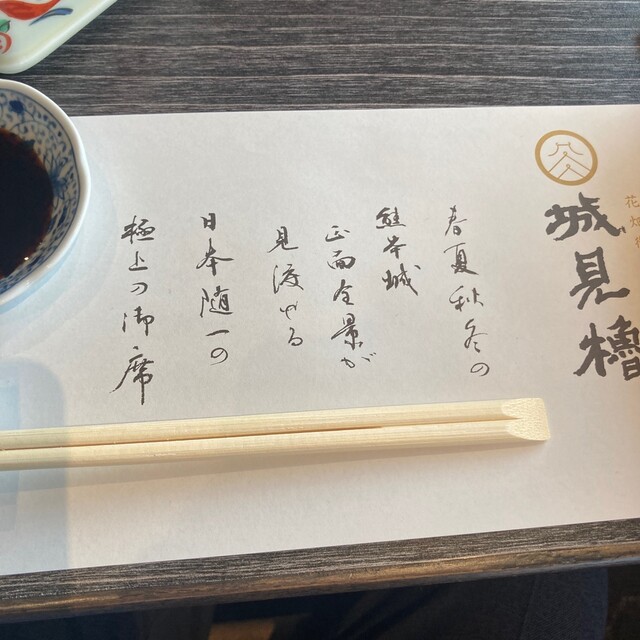 城見櫓
春夏秋冬の
熊本城
正面全景が
見渡せる
日本随一の
極上の御席